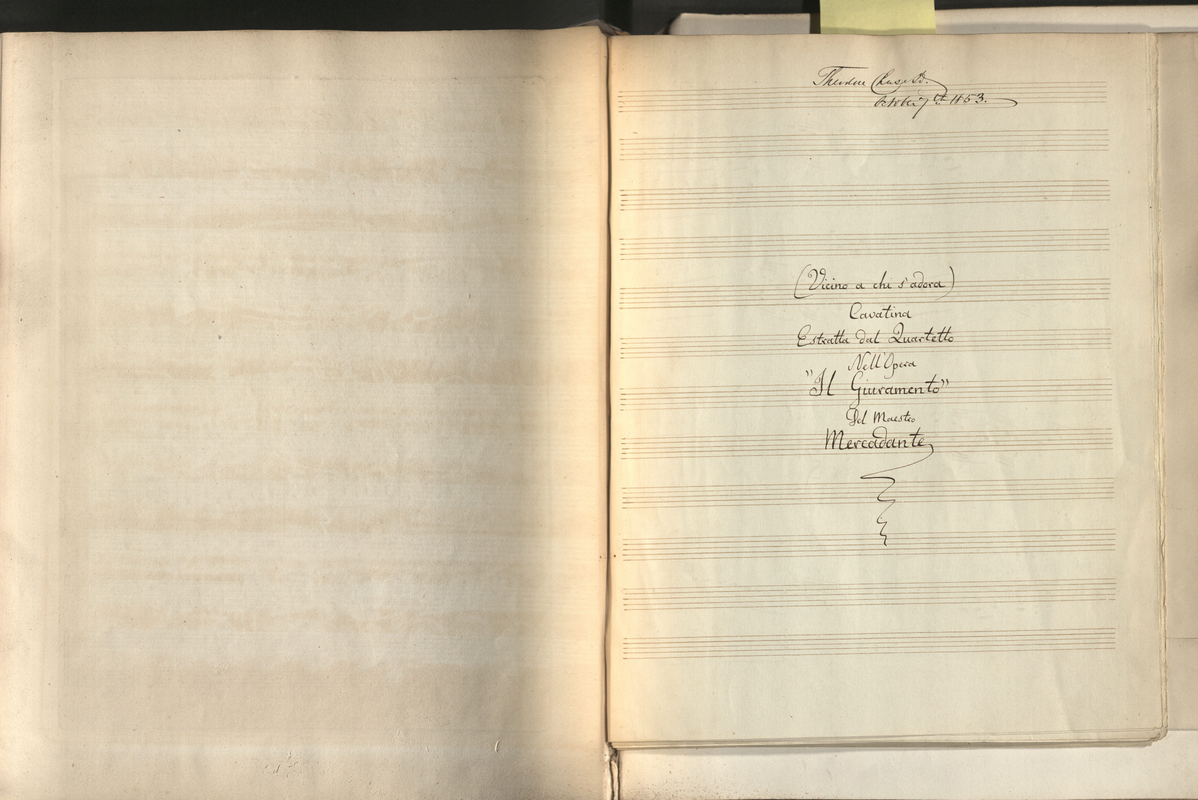 Theodore
October 7th 1853.
(Vicino a chi s'adora)
Cavatina
Estratta dal Quartetto
Nell'Opera
"Il Giuramento"
Del Maestro
Mercadante